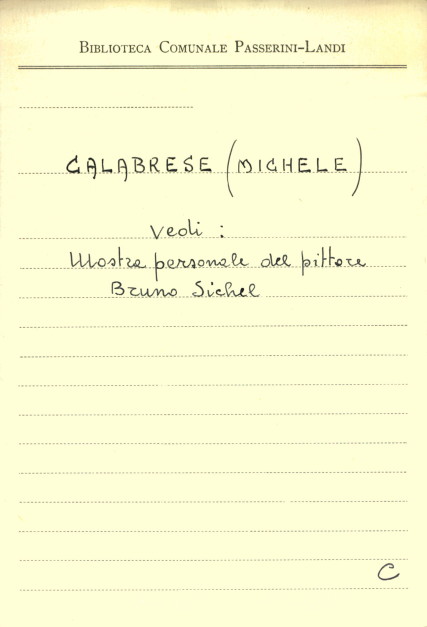 BIBLIOTECA COMUNALE PASSERINI-LANDI
CALABRESE (MICHELE)
Vedi :
Mostra personale del pittore
Bruno Sichel
C